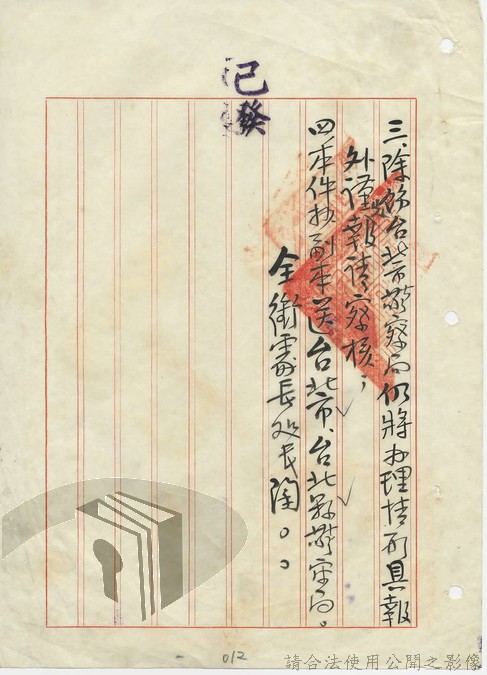 已發
三、除飭台北市警察局仍將办理情形具報
外謹報請察核；
四本件抄副本送台北市、台北縣警察局。
全銜長处长陶。。
012
請合法使用公開之影像